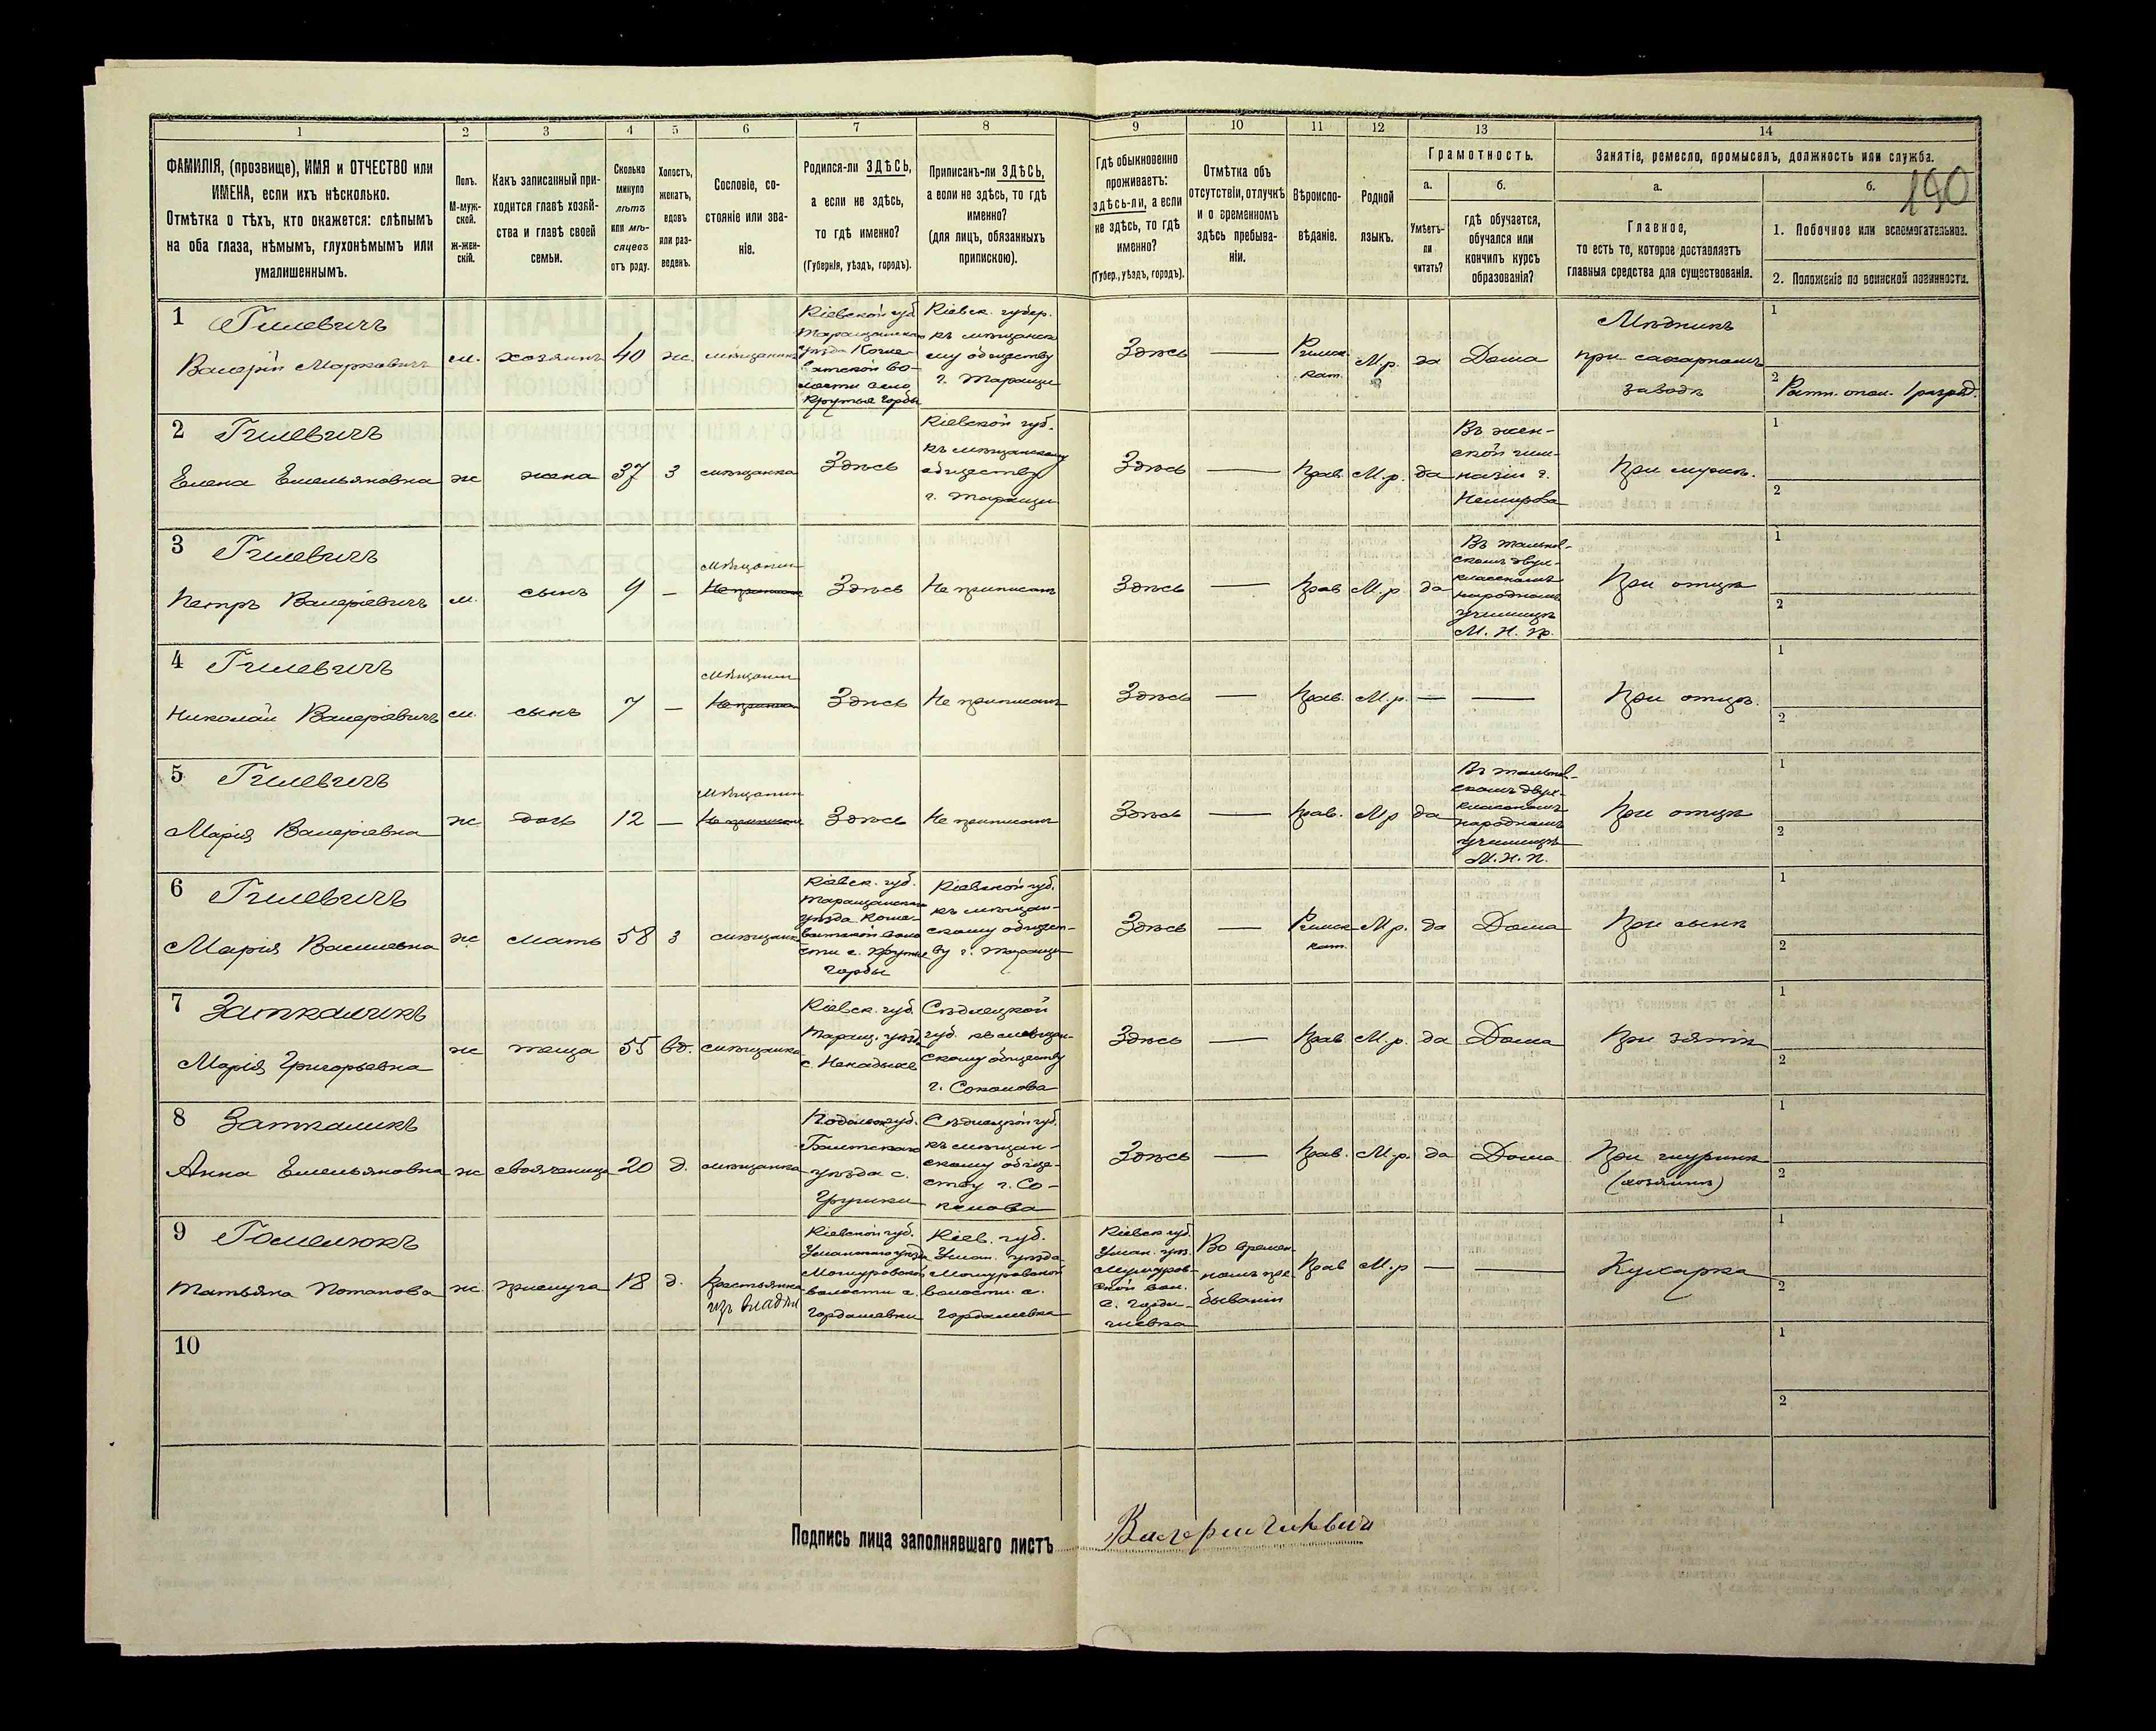 1 2 3 4 5 6 7 8 9 10 11 12 13 14
ФАМИЛІЯ, (прозвище), ИМЯ и ОТЧЕСТВО или
ИМЕНА, если ихъ нѣсколько.
Отмѣтка о тѣхъ, кто окажется: слѣпымъ
на оба глаза, нѣмымъ, глухонѣмымъ или
умалишеннымъ.
Полъ.
М-муж-
ской.
ж-жен-
скій.
Какъ записанный при-
ходится главѣ хозяй-
ства и главѣ своей
семьи.
Сколько
минуло
лѣтъ
или мѣ-
сяцевъ
отъ роду.
Холостъ,
женатъ,
вдовъ
или раз-
веденъ.
Сословіе, со-
стояніе или зва-
ніе.
Родился-ли ЗДѢСЬ,
а если не здѣсь,
то гдѣ именно?
(Губернія, уѣздъ, городъ).
Приписанъ-ли ЗДѢСЬ,
а если не здѣсь, то гдѣ
именно?
(для лицъ, обязанныхъ
припискою).
Гдѣ обыкновенно
проживаетъ:
здѣсь-ли, а если
не здѣсь, то гдѣ
именно?
(Губер., уѣздъ, городъ).
Отмѣтка объ
отсутствіи, отлучкѣ
и о временномъ
здѣсь пребыва-
ніи.
Вѣроиспо-
вѣданіе.
Родной
языкъ.
Грамотность.
а.
Умѣетъ-
ли
читать?
б.
гдѣ обучается,
обучался или
кончилъ курсъ
образованія?
Занятіе, ремесло, промыселъ, должность или служба.
а.
Главное,
то есть то, которое доставляетъ
главныя средства для существованія.
б.
190
1. Побочное или вспомогательное.
2. Положеніе по воинской повинности.
1 Гилевичъ
Валерій Марковичъ
м.
хозяинъ
40
ж.
мѣщанинъ
Кіевской губ
Таращанскаго
уѣзда
волости село
Крутые Горбы
Кіевск. губер.
къ мѣщанск
ому обществу
г. Таращи
Здѣсь
—
Римск.
кат.
М.р.
да
Дома
Мѣдникъ
при сахарномъ
заводѣ
1
2 Ратн. опол. 1 разряд.
2 Гилевичъ
Елена Емельяновна
ж
жена
37
З
мѣщанка
Здѣсь
Кіевской губ.
къ мѣщанскому
обществу
г. Таращи
Здѣсь
—
Прав.
М.р.
да
Въ жен-
ской гим-
назіи г.
Немирова
При мужѣ.
1
2
3 Гилевичъ
Петръ Валеріевичъ
м.
сынъ
9
—
мѣщанин
Здѣсь
Не приписанъ
Здѣсь
—
Прав
М.р.
да
Въ тальнов-
скомъ двух-
классномъ
народномъ
училищѣ
М. Н. П.
При отцѣ
1
2
4 Гилевичъ
Николай Валеріевичъ
м.
сынъ
7
—
мѣщанин
Здѣсь
Не приписанъ
Здѣсь
—
Прав.
М.р.
—
—
При отцѣ.
1
2
5 Гилевичъ
Марія Валеріевна
ж
дочь
12
—
мѣщанин
Здѣсь
Не приписанъ
Здѣсь
—
Прав.
М.р
да
Въ тальнов-
скомъ двух-
классномъ
народномъ
училищѣ
М. Н. П.
При отцѣ
1
2
6 Гилевичъ
Марія Васильевна
ж
мать
58
з
мѣщанка
Кіевск. губ.
Таращанскаго
уѣзда Коше-
ватской воло
сти с. Крутые
Горбы
Кіевской губ.
къ мѣщан-
скому общест-
ву г. Таращи
Здѣсь
—
Римск
кат.
М.р.
да
Дома
При сынѣ
1
2
7 Заткаликъ
Марія Григорьевна
ж
теща
55
вд.
мѣщанка
Кіевск. губ.
Таращ. уѣзд
с. Ненадыхе
Сѣдлецкой
губ. къ мѣщан-
скому обществу
г. Соколова
Здѣсь
—
Прав
М.р.
да
Дома
При зятѣ
1
2
8 Заткаликъ
Анна Емельяновна
ж
своячница
20
д.
мѣщанка
Подольск губ.
Балтскаго
уѣзда с.
Грушки
Сѣдлецкой губ.
къ мѣщан-
скому обще-
ству г. Со-
колова
Здѣсь
—
Прав.
М.р.
да
Дома
При шуринѣ
(хозяинѣ)
1
2
9 Гомелюкъ
Татьяна Потапова
ж.
прислуга
18
д.
Крестьянка
изъ владѣл
Кіевской губ.
Уманскаго уѣзда
Мошуровской
волости с.
Гордашевки
Кіев. губ.
Уман. уѣзда
Мошуровской
волости. с.
Гордашевка
Кіевск губ.
Уман. уѣз.
ской вол.
Во времен-
номъ пре-
бываніи
Прав
М.р
—
—
Кухарка
1
2
10
1
2
Подпись лица заполнявшаго листъ Валерій Гилевичъ